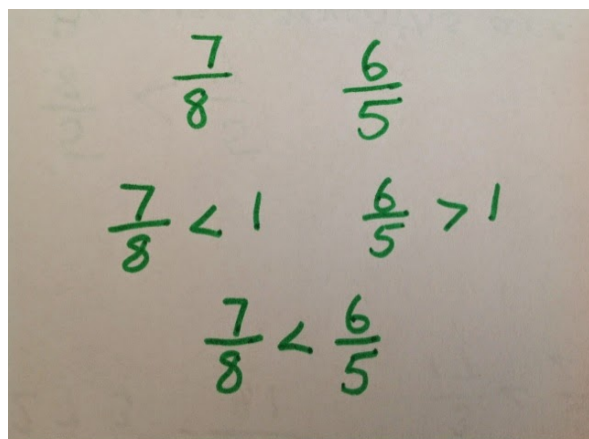 7/8 6/5
7/8 < 1 6/5 > 1
7/8 < 6/5